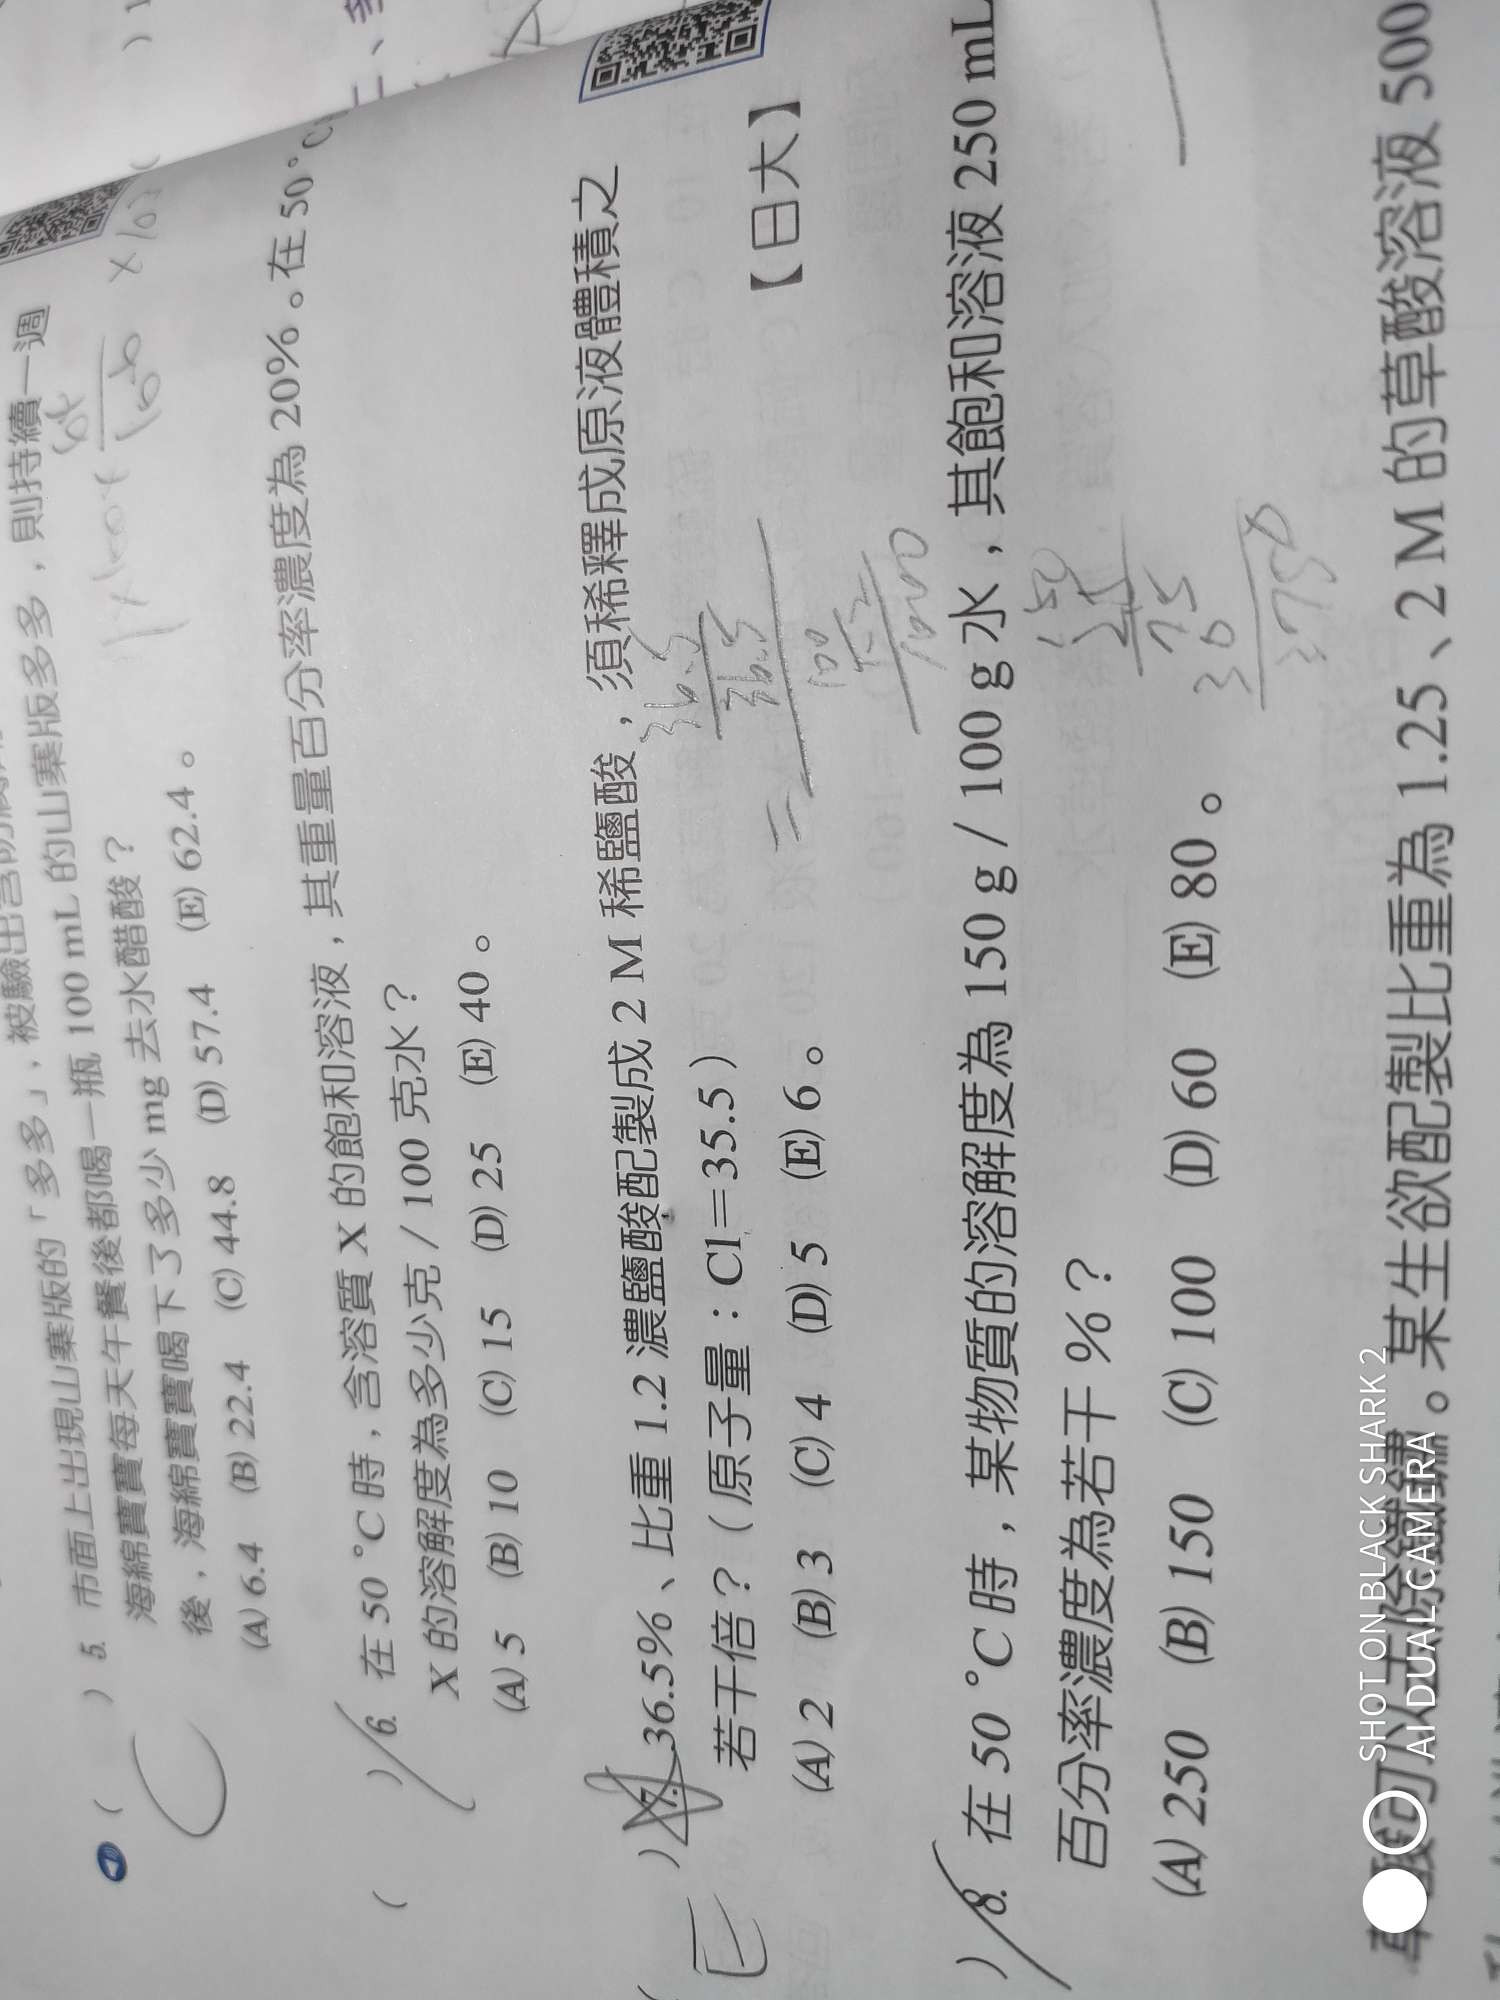 5. 市面上出現山寨版的「多多」，被驗出含防腐
海綿寶寶每天午餐後都喝一瓶 100 mL 的山寨版多多，則持續一週
後，海綿寶寶喝下了多少 mg 去水醋酸？
(A) 6.4 (B) 22.4 (C) 44.8 (D) 57.4 (E) 62.4。
6. 在 50 °C 時，含溶質 X 的飽和溶液，其重量百分率濃度為 20%。在 50 °C
X 的溶解度為多少克 / 100 克水？
(A) 5 (B) 10 (C) 15 (D) 25 (E) 40。
7. 36.5%、比重 1.2 濃鹽酸配製成 2 M 稀鹽酸，須稀釋成原液體積之
若干倍？（原子量：Cl＝35.5）
【日大】
(A) 2 (B) 3 (C) 4 (D) 5 (E) 6。
E
36.5
36.5
100
1000
8. 在 50 °C 時，某物質的溶解度為 150 g / 100 g 水，其飽和溶液 250 mL
百分率濃度為若干 %？
(A) 250 (B) 150 (C) 100 (D) 60 (E) 80。
150
25
75
30
3750
草酸可以生除鐵鏽。某生欲配製比重為 1.25、2 M 的草酸溶液 500
SHOT ON BLACK SHARK 2
AI DUAL CAMERA